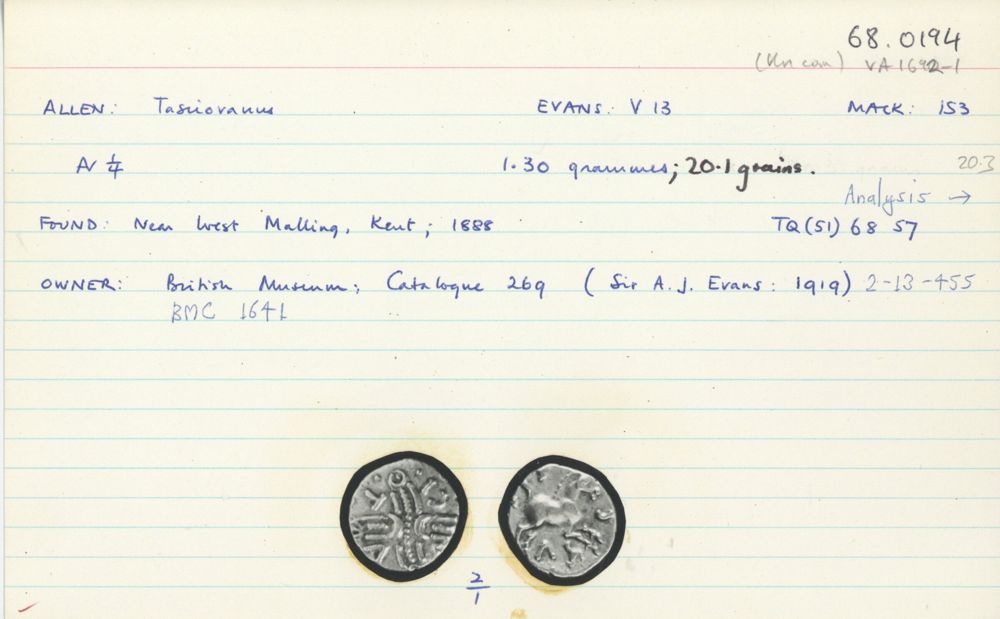 68.0194
(Un com) VA 1692-1
ALLEN: Tasciovanus EVANS: V 13 MACK: 153
AV 1/4 1.30 grammes; 20.1 grains. 20.3
Analysis →
FOUND: Near West Malling, Kent; 1888 TQ (51) 68 57
OWNER: British Museum; Catalogue 269 (Sir A. J. Evans: 1919) 2-13-455
BMC 1641
2/1